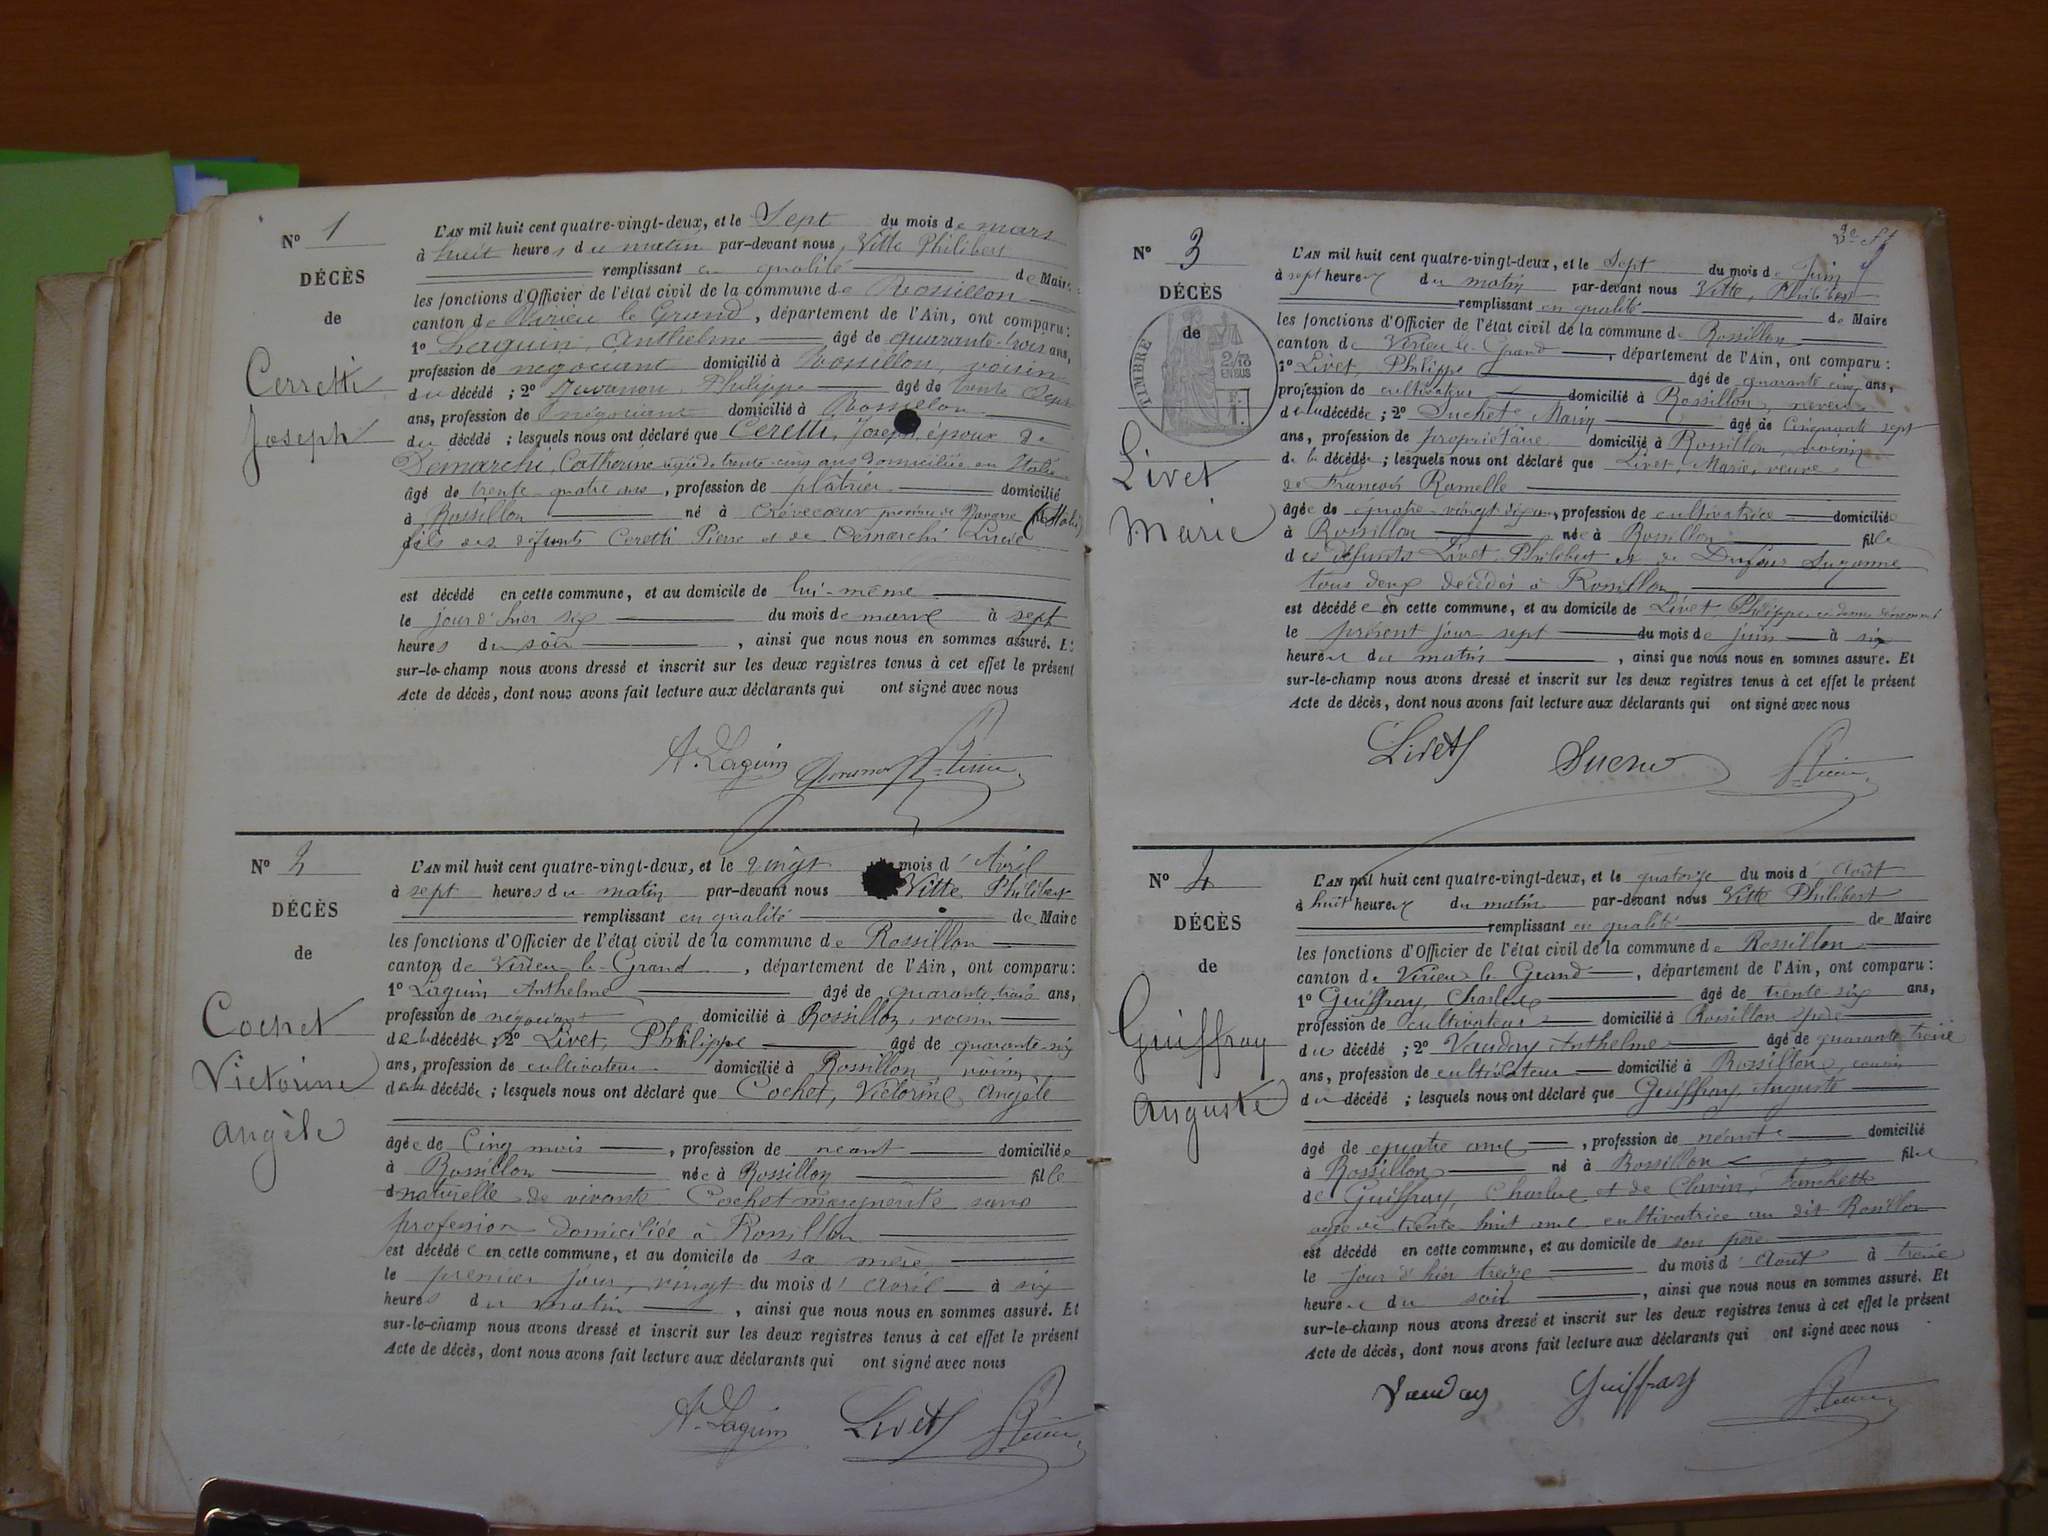 N° 1
DÉCÈS
de
Cerretti
Joseph
L'AN mil huit cent quatre-vingt-deux, et le Sept du mois de mars
à huit heures du matin par-devant nous, Vitte Philibert
remplissant en qualité de Maire
les fonctions d'Officier de l'état civil de la commune de Rossillon
canton de Virieu le Grand, département de l'Ain, ont comparu :
1° Laguin, Anthelme âgé de quarante-trois ans,
profession de négociant domicilié à Rossillon, voisin
du décédé ; 2° Philippe âgé de trente sept
ans, profession de négociant domicilié à Rossillon
du décédé ; lesquels nous ont déclaré que Ceretti, Joseph, époux de
Demarchi, Catherine âgée de trente-cinq ans domiciliée en Italie
âgé de trente-quatre ans, profession de plâtrier domicilié
à Rossillon né à Crèvecoeur province de (Italie)
fils des défunts Ceretti Pierre et de Démarchi Lucie
est décédé en cette commune, et au domicile de lui-même
le jour d'hier six du mois de mars à sept
heures du soir, ainsi que nous nous en sommes assuré. Et
sur-le-champ nous avons dressé et inscrit sur les deux registres tenus à cet effet le présent
Acte de décès, dont nous avons fait lecture aux déclarants qui ont signé avec nous
A. Laguin
N° 2
DÉCÈS
de
Cochet
Victorine
Angèle
L'AN mil huit cent quatre-vingt-deux, et le vingt mois d'Avril
à sept heures du matin par-devant nous Vitte Philibert
remplissant en qualité de Maire
les fonctions d'Officier de l'état civil de la commune de Rossillon
canton de Virieu-le-Grand, département de l'Ain, ont comparu :
1° Laguin Anthelme âgé de quarante-trois ans,
profession de négociant domicilié à Rossillon, voisin
de la décédée ; 2° Livet, Philippe âgé de quarante-six
ans, profession de cultivateur domicilié à Rossillon, voisin
de la décédée ; lesquels nous ont déclaré que Cochet, Victorine Angèle
âgée de Cinq mois, profession de néant domiciliée
à Rossillon née à Rossillon fille
naturelle de vivante Cochet marguerite sans
profession domiciliée à Rossillon
est décédée en cette commune, et au domicile de sa mère
le jour, vingt du mois d'avril à six
heures du matin, ainsi que nous nous en sommes assuré. Et
sur-le-champ nous avons dressé et inscrit sur les deux registres tenus à cet effet le présent
Acte de décès, dont nous avons fait lecture aux déclarants qui ont signé avec nous
A. Laguin Livet
N° 3
DÉCÈS
de
TIMBRE
2/10
EN SUS
Livet
Marie
L'AN mil huit cent quatre-vingt-deux, et le Sept du mois de Juin
à sept heures du matin par-devant nous Vitte, Philibert
remplissant en qualité de Maire
les fonctions d'Officier de l'état civil de la commune de Rossillon
canton de Virieu-le-Grand, département de l'Ain, ont comparu :
1° Livet, Philippe âgé de quarante cinq ans,
profession de cultivateur domicilié à Rossillon, neveu
de la décédée ; 2° Suchet Marin âgé de Cinquante sept
ans, profession de propriétaire domicilié à Rossillon, voisin
de la décédée ; lesquels nous ont déclaré que Livet, Marie, veuve
de François Ramelle
âgée de quatre-vingt-dix ans, profession de cultivatrice domiciliée
à Rossillon née à Rossillon fille
des défunts Livet Philibert et de Dufour Suzanne
tous deux décédés à Rossillon
est décédée en cette commune, et au domicile de Livet, Philippe
le présent jour sept du mois de juin à six
heures du matin, ainsi que nous nous en sommes assuré. Et
sur-le-champ nous avons dressé et inscrit sur les deux registres tenus à cet effet le présent
Acte de décès, dont nous avons fait lecture aux déclarants qui ont signé avec nous
Livet
N° 4
DÉCÈS
de
Guiffray
Auguste
L'AN mil huit cent quatre-vingt-deux, et le quatorze du mois d'Août
à huit heures du matin par-devant nous Vitte Philibert
remplissant en qualité de Maire
les fonctions d'Officier de l'état civil de la commune de Rossillon
canton de Virieu-le-Grand, département de l'Ain, ont comparu :
1° Guiffray, Charles âgé de trente-six ans,
profession de cultivateur domicilié à Rossillon père
du décédé ; 2° Vauday Anthelme âgé de quarante trois
ans, profession de cultivateur domicilié à Rossillon, cousin
du décédé ; lesquels nous ont déclaré que Guiffray Auguste
âgé de quatre ans, profession de néant domicilié
à Rossillon né à Rossillon fils
de Guiffray, Charles et de Clavin, Fanchette
agée de trente huit ans cultivatrice au dit Rossillon
est décédé en cette commune, et au domicile de son père
le jour d'hier treize du mois d'Août à
heures du soir, ainsi que nous nous en sommes assuré. Et
sur-le-champ nous avons dressé et inscrit sur les deux registres tenus à cet effet le présent
Acte de décès, dont nous avons fait lecture aux déclarants qui ont signé avec nous
Vauday Guiffray